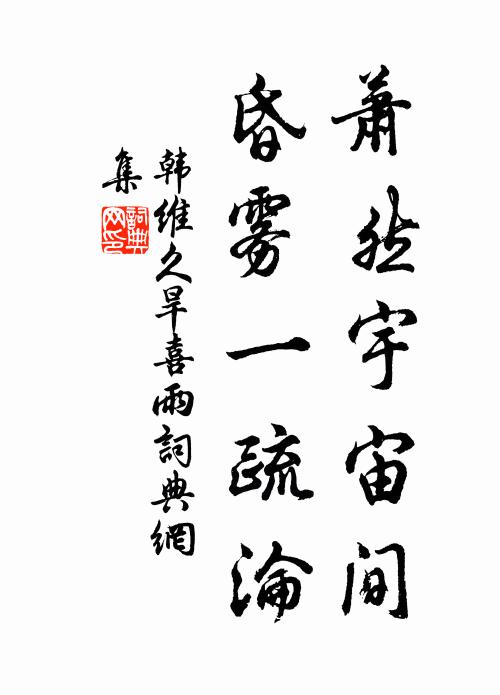 萧然宇宙间
昏雾一疏沦
韩维久旱喜雨詞典網
集
詞典网印